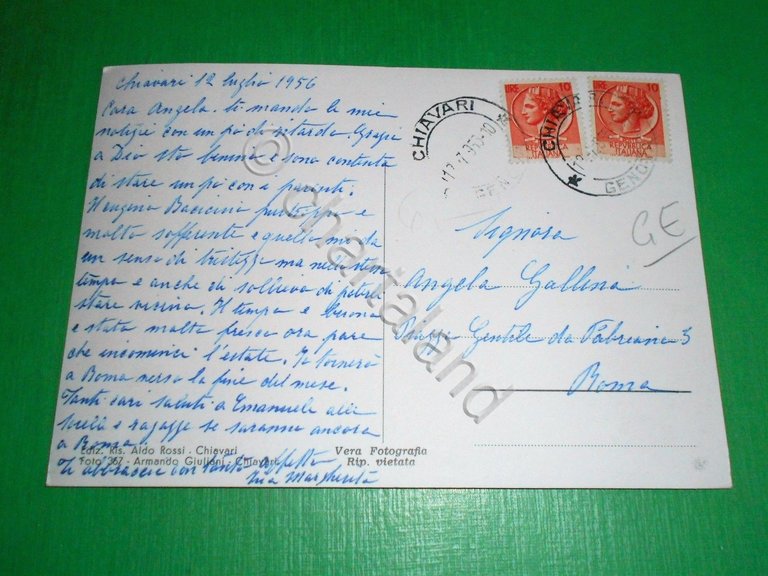 Chiavari 12 luglio 1956
Cara Angela. ti mando le mie
notizie con un po di ritardo. Grazie
a Dio sto benino e sono contenta
di stare un po con i parenti.
Il cugino Bacicini purtroppo e
molto sofferente e quello mi da
un senso di tristezza ma nello stesso
tempo e anche di sollievo di potergli
stare vicino. Il tempo a
e stato molto fresco ora pare
che incominci l'estate. Io tornerò
a Roma verso la fine del mese.
Tanti cari saluti a Emanuele alle
e ragazze se saranno ancora
a Roma
Ti abbraccio con tanto affetto
tua Margherita
Ediz. Ris. Aldo Rossi - Chiavari
Foto 367 - Armando Giuliani - Chiavari
Vera Fotografia
Rip. vietata
CHIAVARI
LIRE 10
REPUBBLICA
ITALIANA
10
REPUBBLICA
ITALIANA
CHIAVARI
GENOVA
GE
Signora
Angela Gallina
Gentile da Fabriano 3
Roma
© chartaland